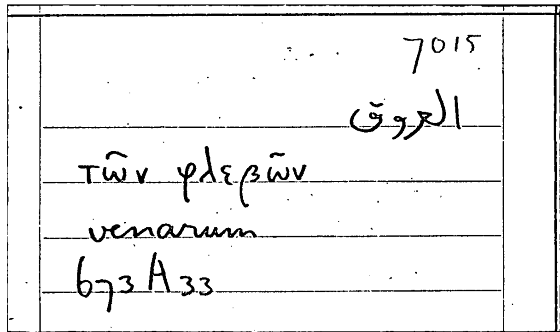 7015
العروق
τῶν φλεβῶν
venarum
673 A 33